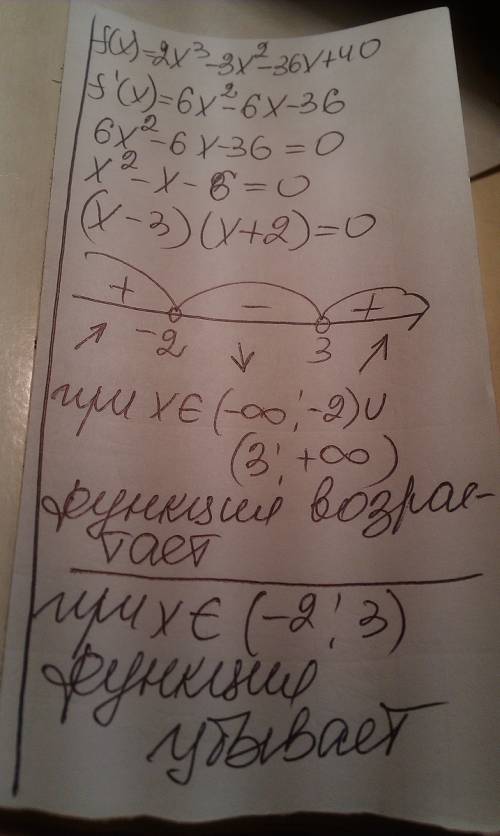 f(x)=2x³-3x²-36x+40
f'(x)=6x²-6x-36
6x²-6x-36=0
x²-x-6=0
(x-3)(x+2)=0
+ - +
-2 3
при x∈(-∞;-2)∪
(3;+∞)
функция возрас-
тает
при x∈(-2;3)
функция
убывает